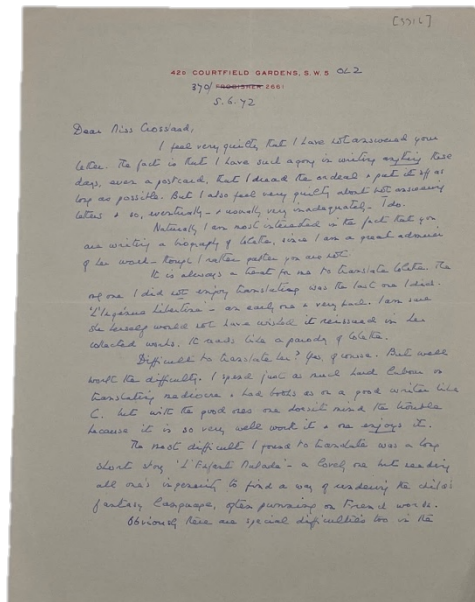 [3316]
42D COURTFIELD GARDENS, S.W.5 OL2
370/ FROBISHER 2661
5.6.72
Dear Miss Crosland,
I feel very guilty that I have not answered your
letter. The fact is that I have such agony in writing anything these
days, even a postcard, that I dread the ordeal & put it off as
long as possible. But I also feel very guilty about not answering
letters & so, eventually – & usually very inadequately – I do.
Naturally I am most interested in the fact that you
are writing a biography of Colette, since I am a great admirer
of her work – though I rather gather you are not.
It is always a treat for me to translate Colette. The
only one I did not enjoy translating was the last one I did.
'L'Ingénue Libertine' – an early one & very bad. I am sure
she herself would not have wished it reissued in her
collected works. It reads like a parody of Colette.
Difficult to translate her? Yes, of course. But well
worth the difficulty. I spend just as much hard labour on
translating mediocre & bad books as on a good writer like
C. but with the good ones one doesn't mind the trouble
because it is so very well worth it & one enjoys it.
The most difficult I found to translate was a long
short story 'L'Enfant Malade' – a lovely one but needing
all one's ingenuity to find a way of rendering the child's
fantasy language, often punning on French words.
Obviously there are special difficulties too in the